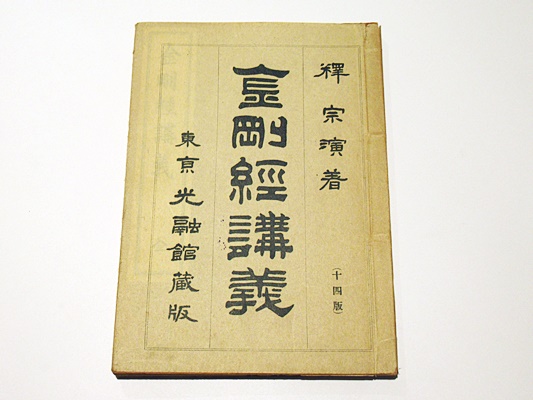 釋宗演著
（十四版）
金剛經講義
東亰光融館藏版